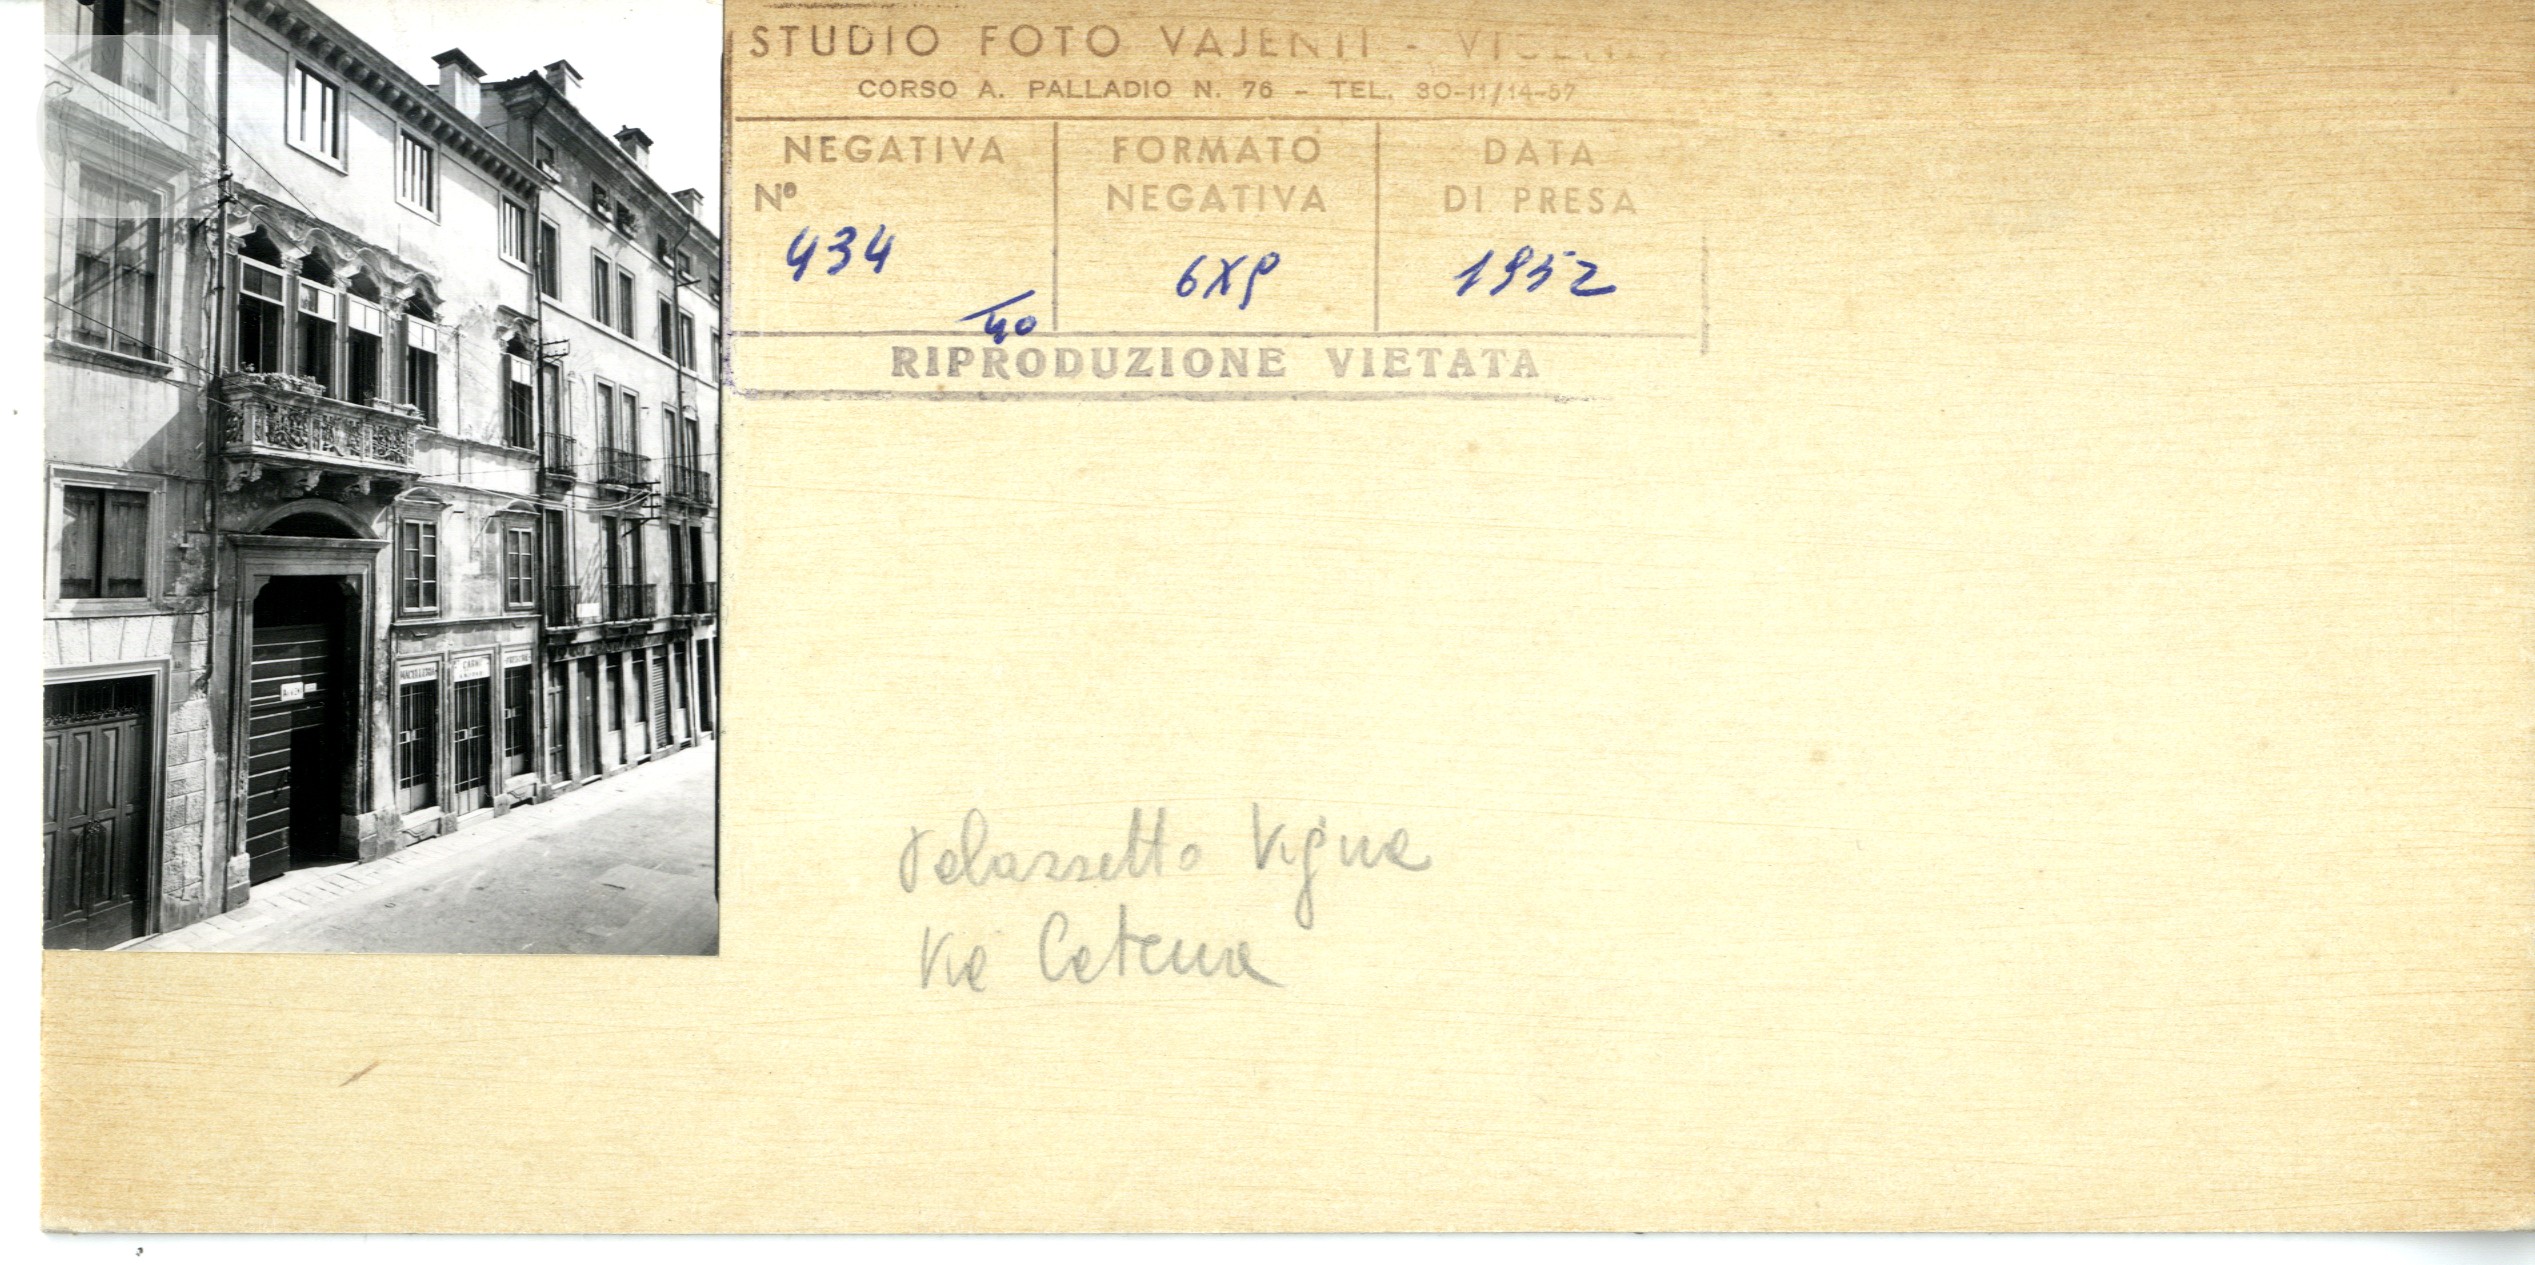 STUDIO FOTO VAJENTI - VICENZA
CORSO A. PALLADIO N. 76 - TEL. 30-11/14-57
NEGATIVA
Nº
434
40
FORMATO
NEGATIVA
6X9
DATA
DI PRESA
1952
RIPRODUZIONE VIETATA
Palazzetto Vigna
Via Catena
MACELLERIA
CARNI